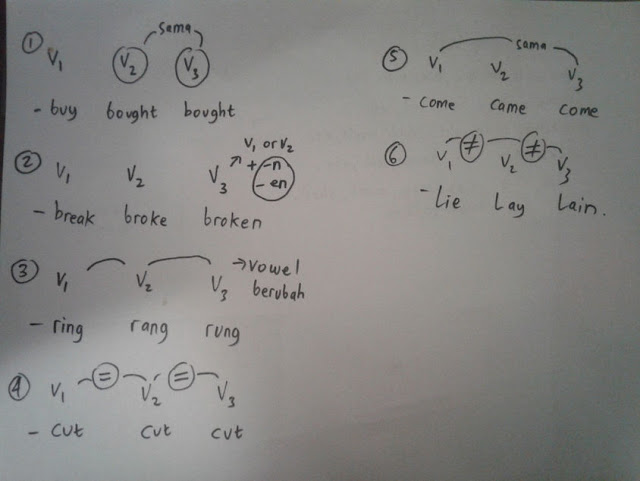 ① sama
V₁ V₂ V₃
- buy bought bought
V₁ or V₂
② V₁ V₂ V₃ ↗ + -n
- en
- break broke broken
③ V₁ V₂ V₃ → Vowel
berubah
- ring rang rung
④ V₁ = V₂ = V₃
- cut cut cut
⑤ sama
V₁ V₂ V₃
- come came come
⑥ V₁ ≠ V₂ ≠ V₃
- Lie Lay Lain.